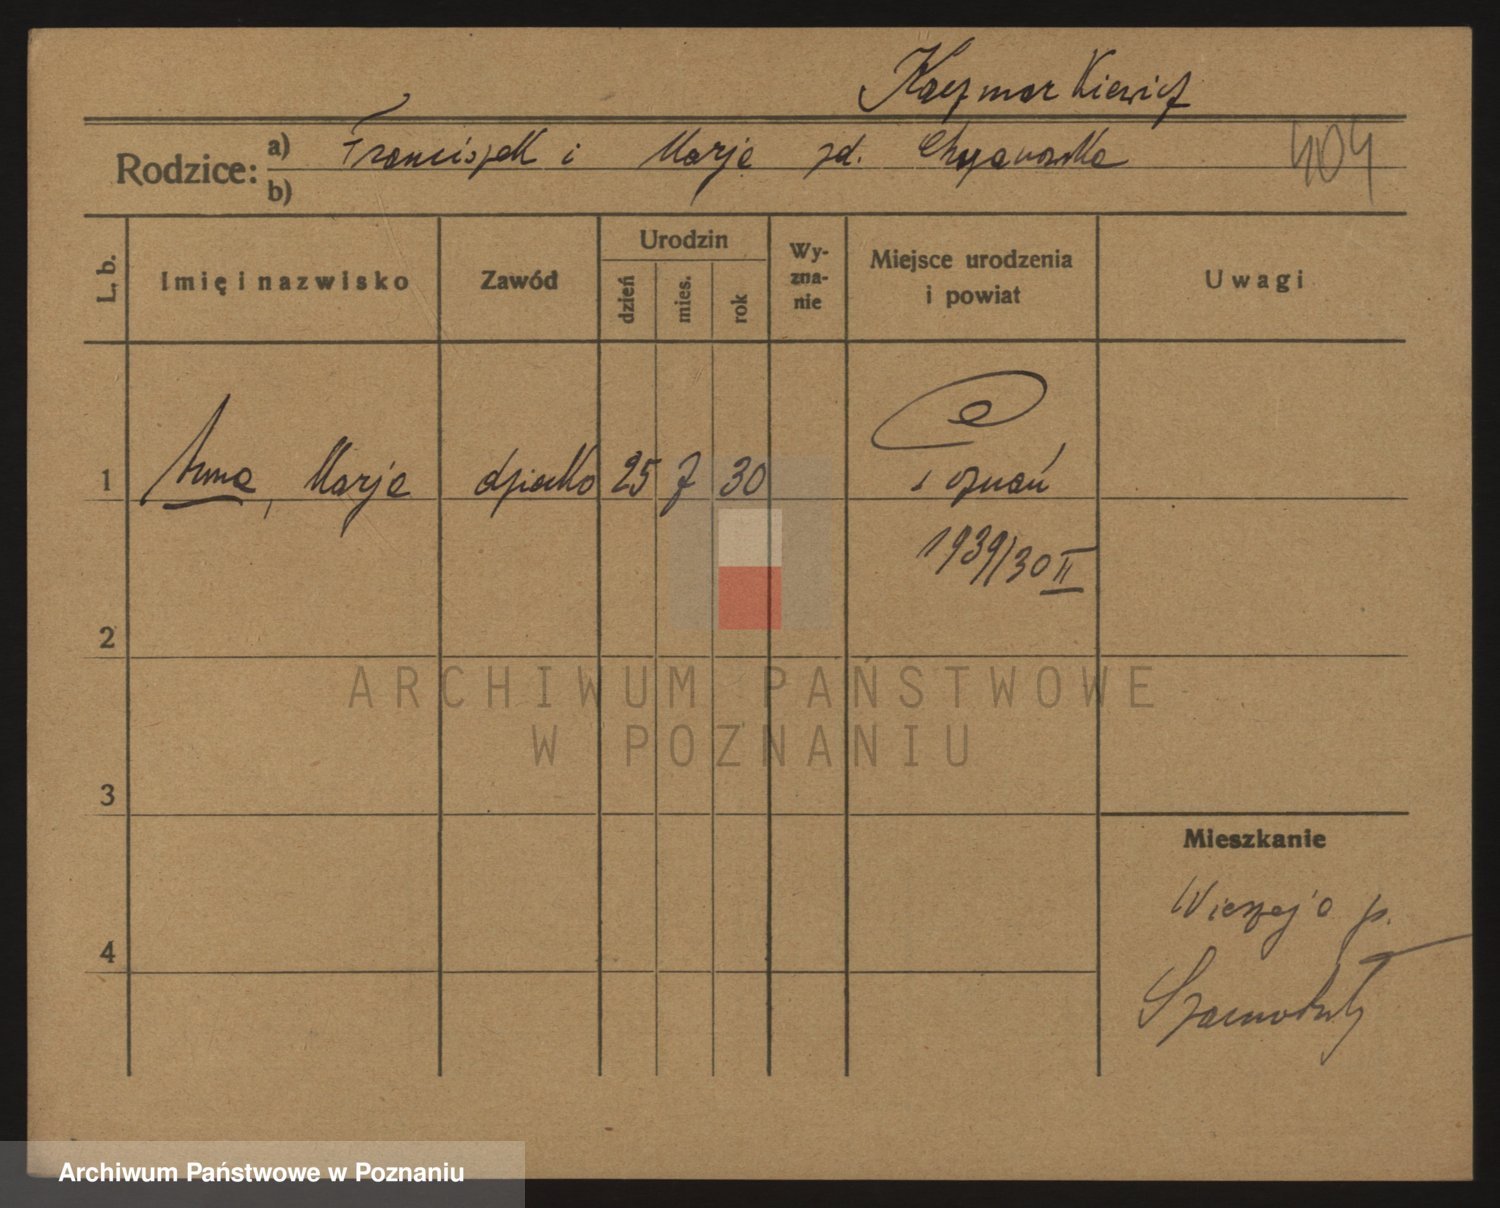 Kaczmarkiewicz
Rodzice: a) Franciszek i Marja zd. Chrzanowska
404
b)
L. b.
Imię i nazwisko
Zawód
Urodzin
dzień
mies.
rok
Wy-
zna-
nie
Miejsce urodzenia
i powiat
Uwagi
1 Anna, Marja dziecko 25 7 30 Poznań
1939/30 II
2
3
4
Mieszkanie
p.
Szamotuły
ARCHIWUM PAŃSTWOWE
W POZNANIU
Archiwum Państwowe w Poznaniu